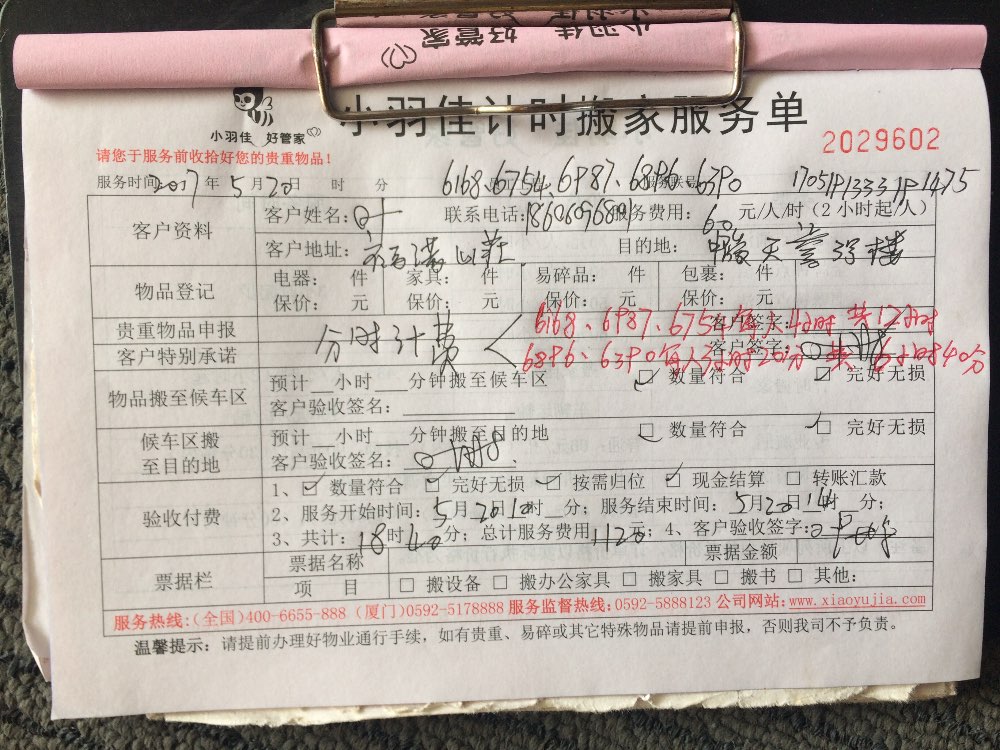 小羽佳 好管家
小羽佳 好管家
小羽佳计时搬家服务单
2029602
请您于服务前收拾好您的贵重物品！
服务时间 2017年5月20日 时 分 6168、6754、6987、6886、6390
客户资料 客户姓名： 联系电话： 服务费用：60 元/人/时（2小时起/人）
客户地址： 目的地：
物品登记 电器： 件 家具： 件 易碎品： 件 包裹： 件
保价： 元 保价： 元 保价： 元 保价： 元
贵重物品申报 客户签字：
6168、6987、6754每人4小时 共12小时
分时计费
客户特别承诺 客户签字：
6886、6390每人3小时20分 共6小时40分
物品搬至候车区 预计__小时__分钟搬至候车区 ☑ 数量符合 ☑ 完好无损
客户验收签名：
候车区搬至目的地 预计__小时__分钟搬至目的地 ☑ 数量符合 ☑ 完好无损
客户验收签名：
验收付费 1、☑ 数量符合 ☑ 完好无损 ☑ 按需归位 ☑ 现金结算 □ 转账汇款
2、服务开始时间：5月20日10时__分；服务结束时间：5月20日14时__分；
3、共计：18时40分；总计服务费用1120元；4、客户验收签字：
票据栏 票据名称 票据金额
项 目 □ 搬设备 □ 搬办公家具 □ 搬家具 □ 搬书 □ 其他：
服务热线：(全国)400-6655-888 (厦门)0592-5178888 服务监督热线：0592-5888123 公司网站：www.xiaoyujia.com
温馨提示：请提前办理好物业通行手续，如有贵重、易碎或其它特殊物品请提前申报，否则我司不予负责。